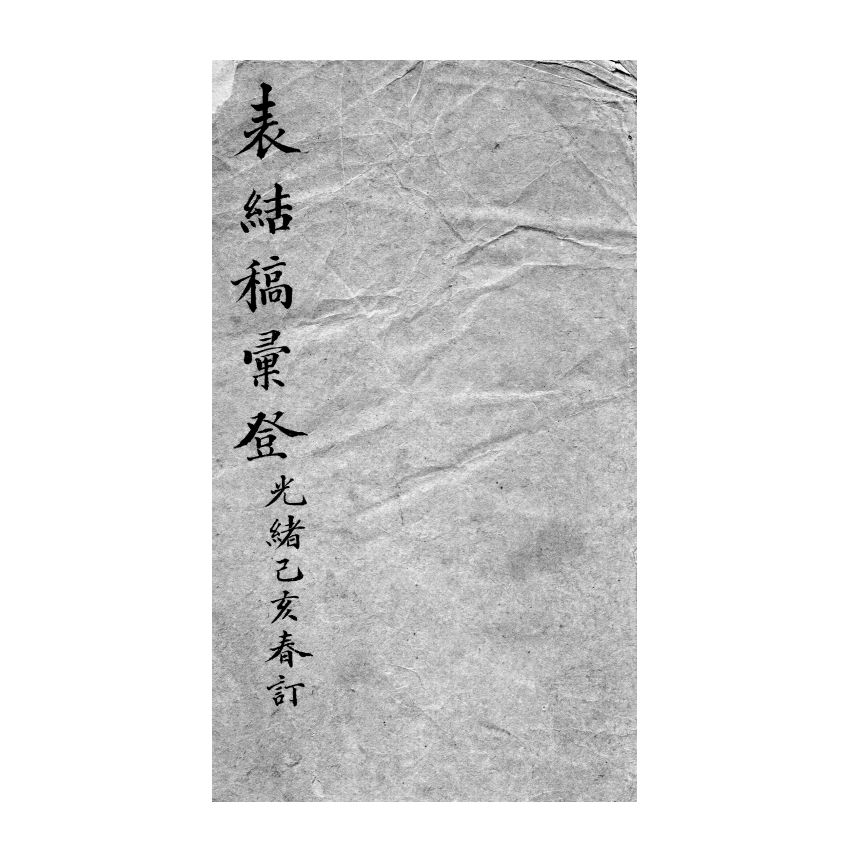 表結稿彙登
光緒己亥春訂